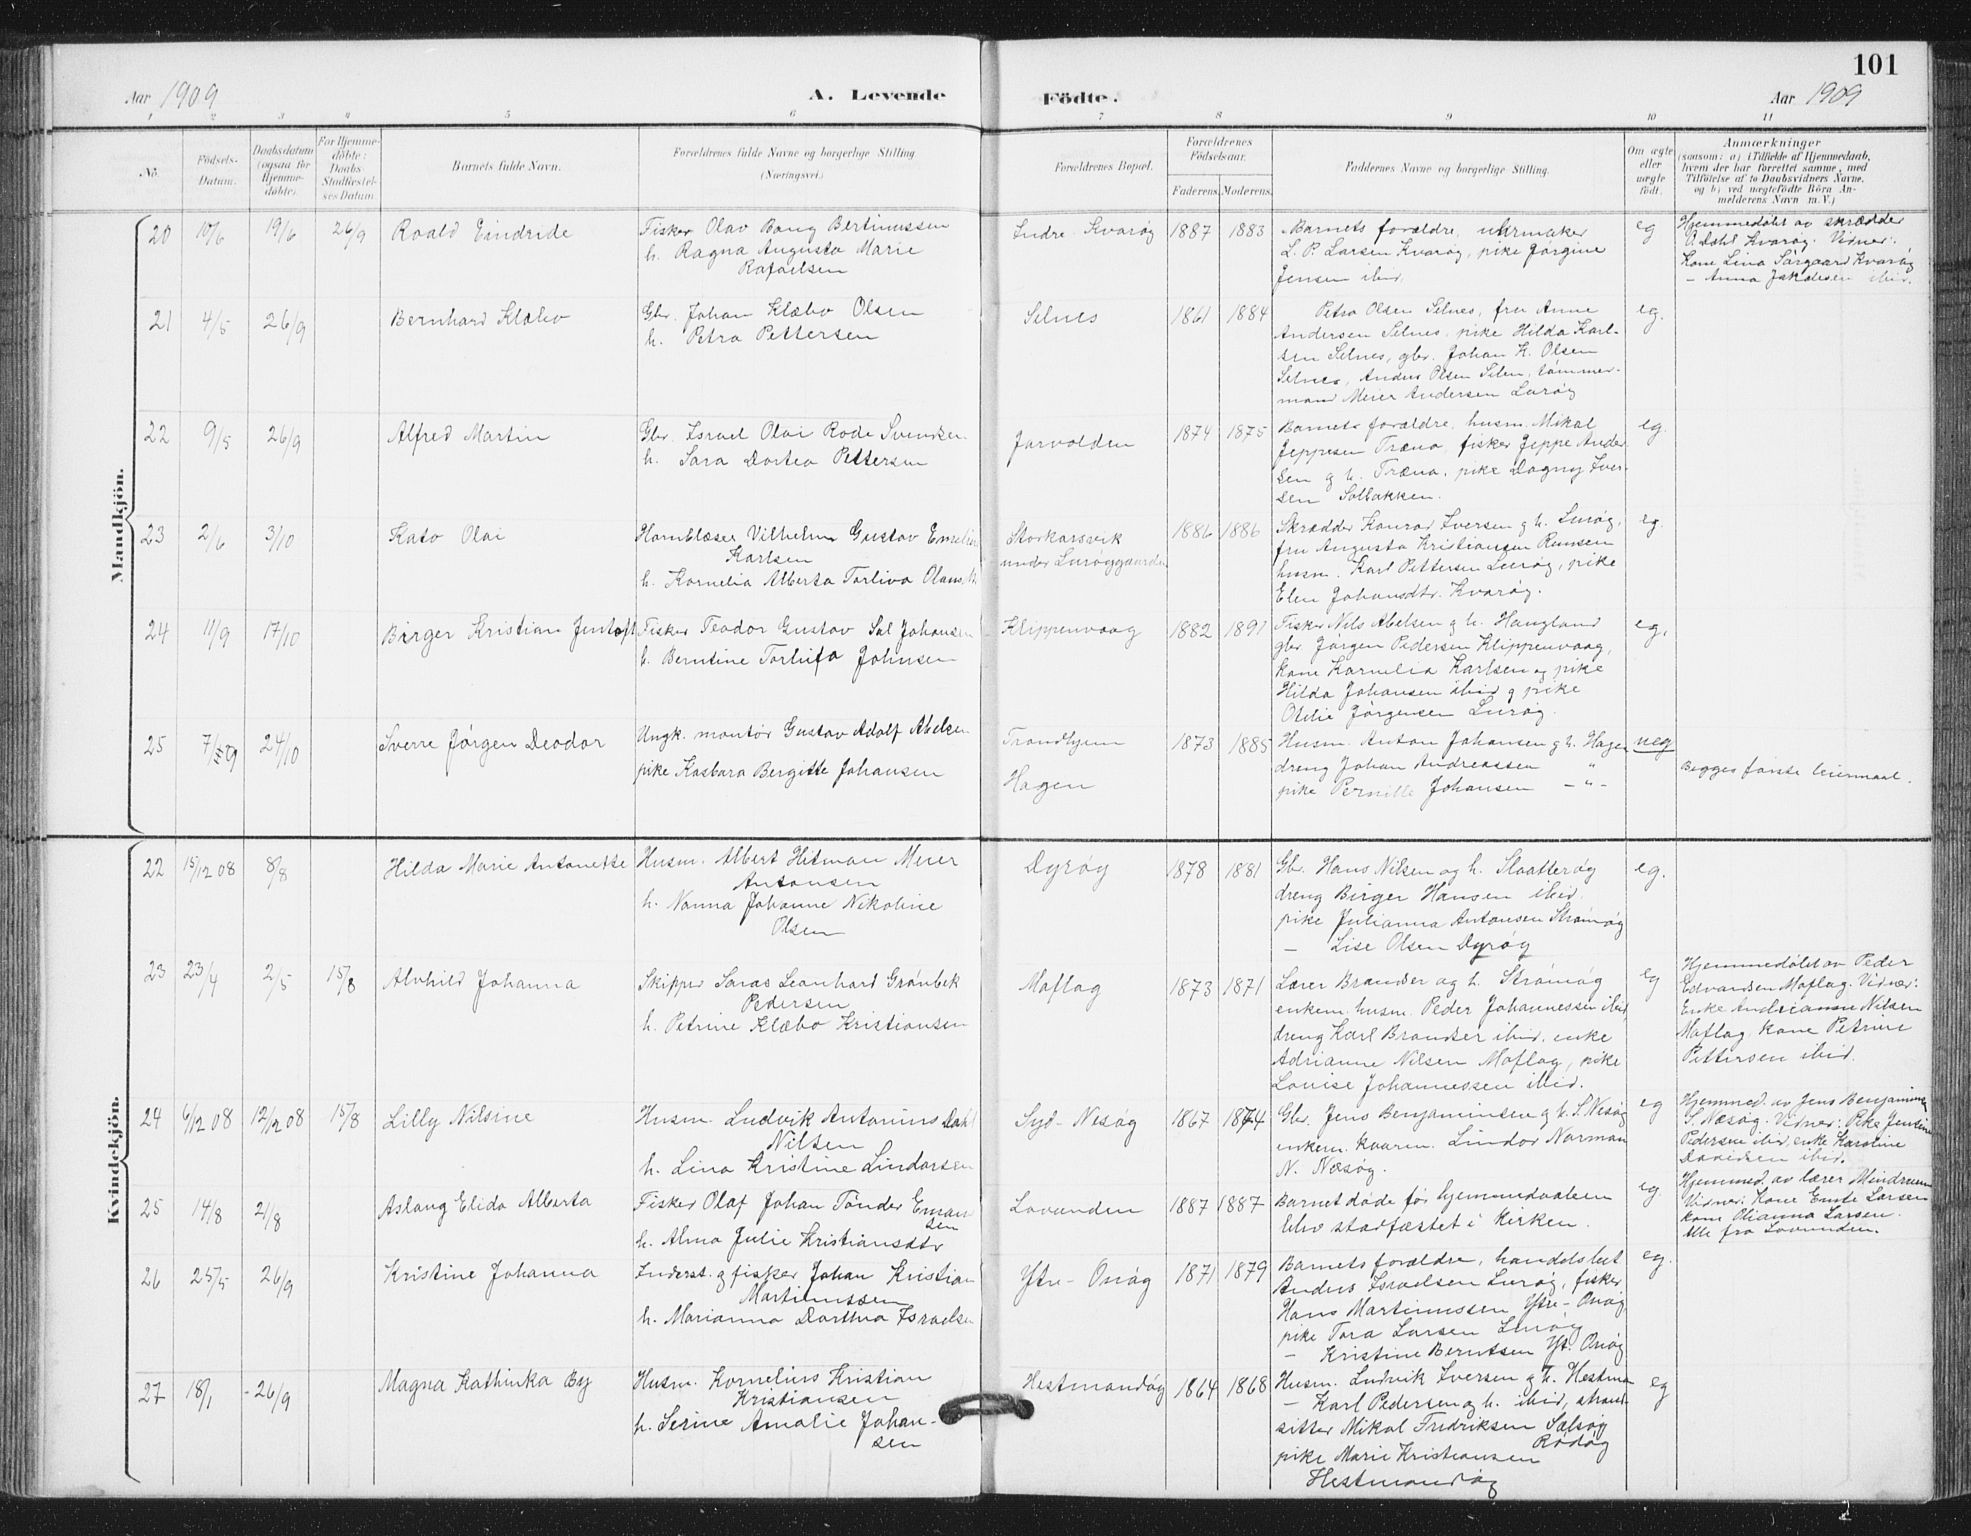 101
Aar 1909
A. Levende Födte.
Aar 1909
1 2 3 4 5 6 7 8 9 10 11
No.
Födsels-
Datum.
Daabsdatum
(ogsaa for
Hjemme-
döbte).
For Hjemme-
döbte:
Daabs-
Stadfæstel-
ses Datum.
Barnets fulde Navn.
Forældrenes fulde Navne og borgerlige Stilling
(Næringsvei.)
Forældrenes Bopæl.
Forældrenes
Födselsaar.
Faderens. Moderens.
Faddernes Navne og borgerlige Stilling.
Om ægte
eller
uægte
födt.
Anmærkninger
(saasom: a) i Tilfælde af Hjemmedaab,
hvem der har forrettet samme, med
Tilföielse af to Daabsvidners Navne,
og b) ved uægtefödte Börn An-
melderens Navn m. V.)
Mandkjön.
20 10/6 19/6 26/9 Roald Eindride
Fisker Olav Bang Bertinussen
h. Ragna Augusta Marie
Rafaelsen
Indre-Kvarøy 1887 1883
Barnets forældre, uhrmaker
L. P. Larsen Kvarøy, pike Jørgine
Jensen ibid.
eg
Hjemmedøbt av skrædder
Dahl Kvarøy. Vidner:
Kone Lina Sørgaard Kvarøy
– Anna Jakobsen ibid.
21 4/5 26/9 Bernhard Klæbo
Gbr. Johan Klæbo Olsen
h. Petra Pettersen
Selnes 1861 1884
Petra Olsen Selnes, fru Anne
Andersen Selnes, pike Hilda Karl-
sen Selnes, gbr. Johan K. Olsen
Selnes, Anders Olsen Selen, tømmer-
mand Meier Andersen Lurøy
eg.
22 9/5 26/9 Alfred Martin
Gbr. Israel Olai Rode Svendsen
h. Sara Dortea Pettersen
Jarvolden 1874 1875
Barnets forældre, husm. Mikal
Jeppesen Træna, fisker Jeppe Ander
sen g h. Træna, pike Dagny Iver-
sen Solbakken.
eg.
23 2/6 3/10 Kato Olai
Hornblæser Vilhelm Gustav Emelius
Karlsen
h. Kornelia Alberta Torliva Olaus.
Storkarsvik
under Lurøygaarden
1886 1886
Skrædder Konrad Iversen g h. Lurøy,
fru Augusta Kristiansen Runsen
husm. Karl Pettersen Lurøy, pike
Elen Johansdtr. Kvarøy.
eg.
24 11/9 17/10 Birger Kristian Jentoft
Fisker Teodor Gustav Sal Johansen
h. Berntine Torlufa Johnsen
Klippenvaag 1882 1891
Fisker Nils Abelsen g h. Haugland
gbr. Jørgen Pedersen Klippenvaag,
kone Kornelia Karlsen og pike
Hilda Johansen ibid g pike
Otilie Jørgensen Lurøy.
eg.
25 7/5 09 24/10 Sverre Jørgen Deodor
Ungk. montør Gustav Adolf Abelsen
pike Kasbara Bergitte Johansen
Trondhjem
Hagen
1873 1885
Husm. Anton Johansen g h. Hagen
dreng Johan Andreassen "
pike Pernille Johansen – " –
ueg
Begges første leiermaal.
Kvindekjön.
22 15/12 08 8/8 Hilda Marie Antonette
Husm. Albert Hitman Meier
Antonsen
h. Nanna Johanne Nikoline
Olsen
Dyrøy 1878 1881
Gbr. Hans Nilsen og h. Slaatterøy
dreng Birger Hansen ibid.
pike Julianna Antonsen Strømøy
– Lise Olsen Dyrøy
eg.
23 23/4 2/5 15/8 Alvhild Johanna
Skipper Saras Leonhard Grønbek
Pedersen
h. Petrine Klæbo Kristiansen
Moflag 1873 1871
Lærer Brandser og h. Strømøy
enkem. husm. Peder Johannessen ibid,
dreng Karl Brandser ibid. enke
Adrianne Nilsen Moflag, pike
Louise Johannessen ibid.
eg
Hjemmedøbt av Peder
Edvardsen Moflag. Vidner:
Enke Andrianne Nilsen
Moflag, kone Petrine
Pettersen ibid.
24 6/12 08 12/12 08 15/8 Lilly Nilsine
Husm. Ludvik Antonius Dahl
Nilsen
h. Lina Kristine Lindorsen
Syd-Nesøy 1867 1874
Gbr. Jens Benjaminsen g h. S. Nesøy
enkem. kvarm. Lindor Norman
N. Næsøy.
eg
Hjemmed. av Jens Benjaminsen
S. Næsøy. Vidner: Pike Jensine
Pedersen ibid, enke Karoline
Davidsen ibid.
25 14/8 21/8 Aslaug Elida Alberta
Fisker Olaf Johan Tønder Eman
sen
h. Alma Julie Kristiansdtr
Lovunden 1887 1887
Barnet døde før hjemmedaaben
blev stadfæstet i kirken.
eg.
Hjemmed. av lærer Mindrum
Vidner: Kone Emte Larsen
kone Olianna Larsen.
alle fra Lovunden.
26 25/5 26/9 Kristine Johanna
Inderst. g fisker Johan Kristian
Martinussen
h. Marianna Dorthea Israelsen
Ytre-Onøy 1871 1879
Barnets forældre, handelsbest
Anders Israelsen Lurøy, fisker
Hans Martinussen Ytre-Onøy,
pike Tora Larsen Lurøy
– Kristine Berntsen Yt. Onøy
eg.
27 18/1 26/9 Magna Kathinka By
Husm. Kornelius Kristian
Kristiansen
h. Serine Amalie Johan-
sen
Hestmandøy 1864 1868
Husm. Ludvik Iversen g h. Hestma
– Karl Pedersen og h. ibid, strand-
sitter Mikal Fredriksen Selsøy
Rødøy
pike Marie Kristiansen
Hestmandøy
eg